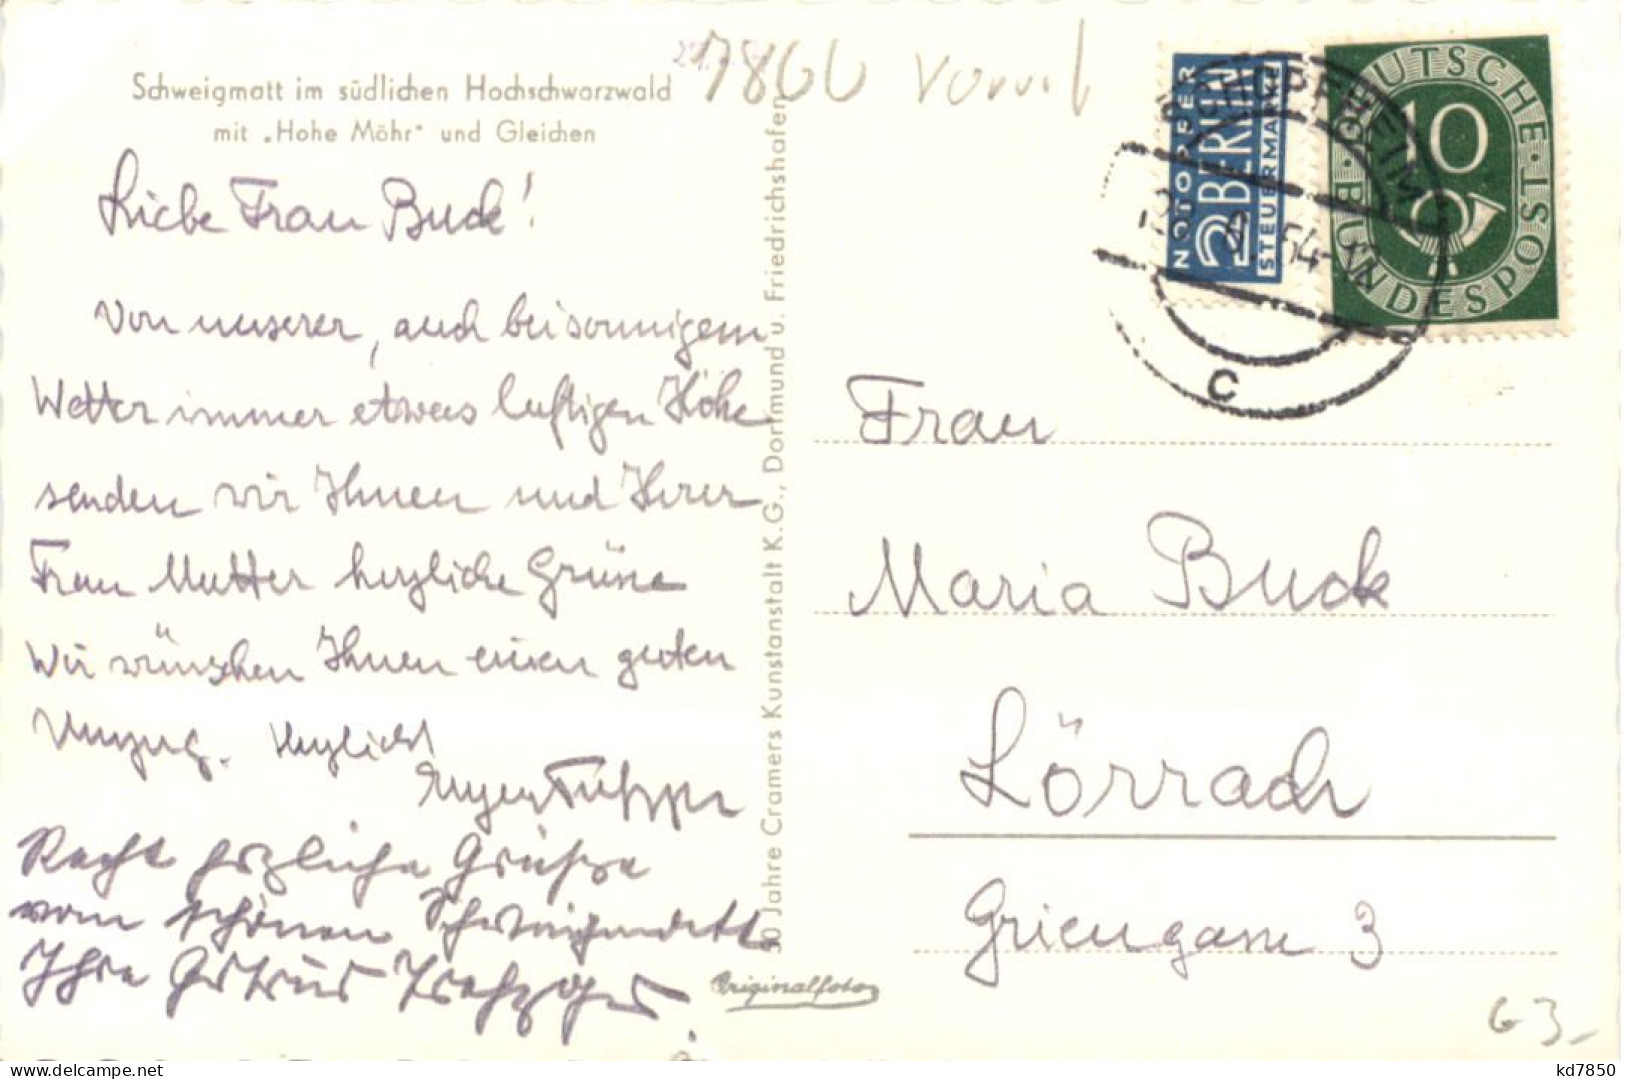 Schweigmatt im südlichen Hochschwarzwald
mit „Hohe Möhr" und Gleichen
7860 Vorwl
Liebe Frau Buck!
Von unserer, auch bei sonnigem
Wetter immer etwas luftigen Höhe
senden wir Ihnen und Ihrer
Frau Mutter herzliche Grüsse
Wir wünschen Ihnen einen guten
Umzug. Herzlichst
Recht herzliche Grüße
vom schönen Schweigmatt
Ihre Gertrud
50 Jahre Cramers Kunstanstalt K.G., Dortmund u. Friedrichshafen
Originalfoto
NOTOPFER
2 BERLIN
STEUERMARKE
DEUTSCHE BUNDESPOST
10
SCHOPFHEIM
54-12
C
Frau
Maria Buck
Lörrach
Griengasse 3
G 3,-
kd7850